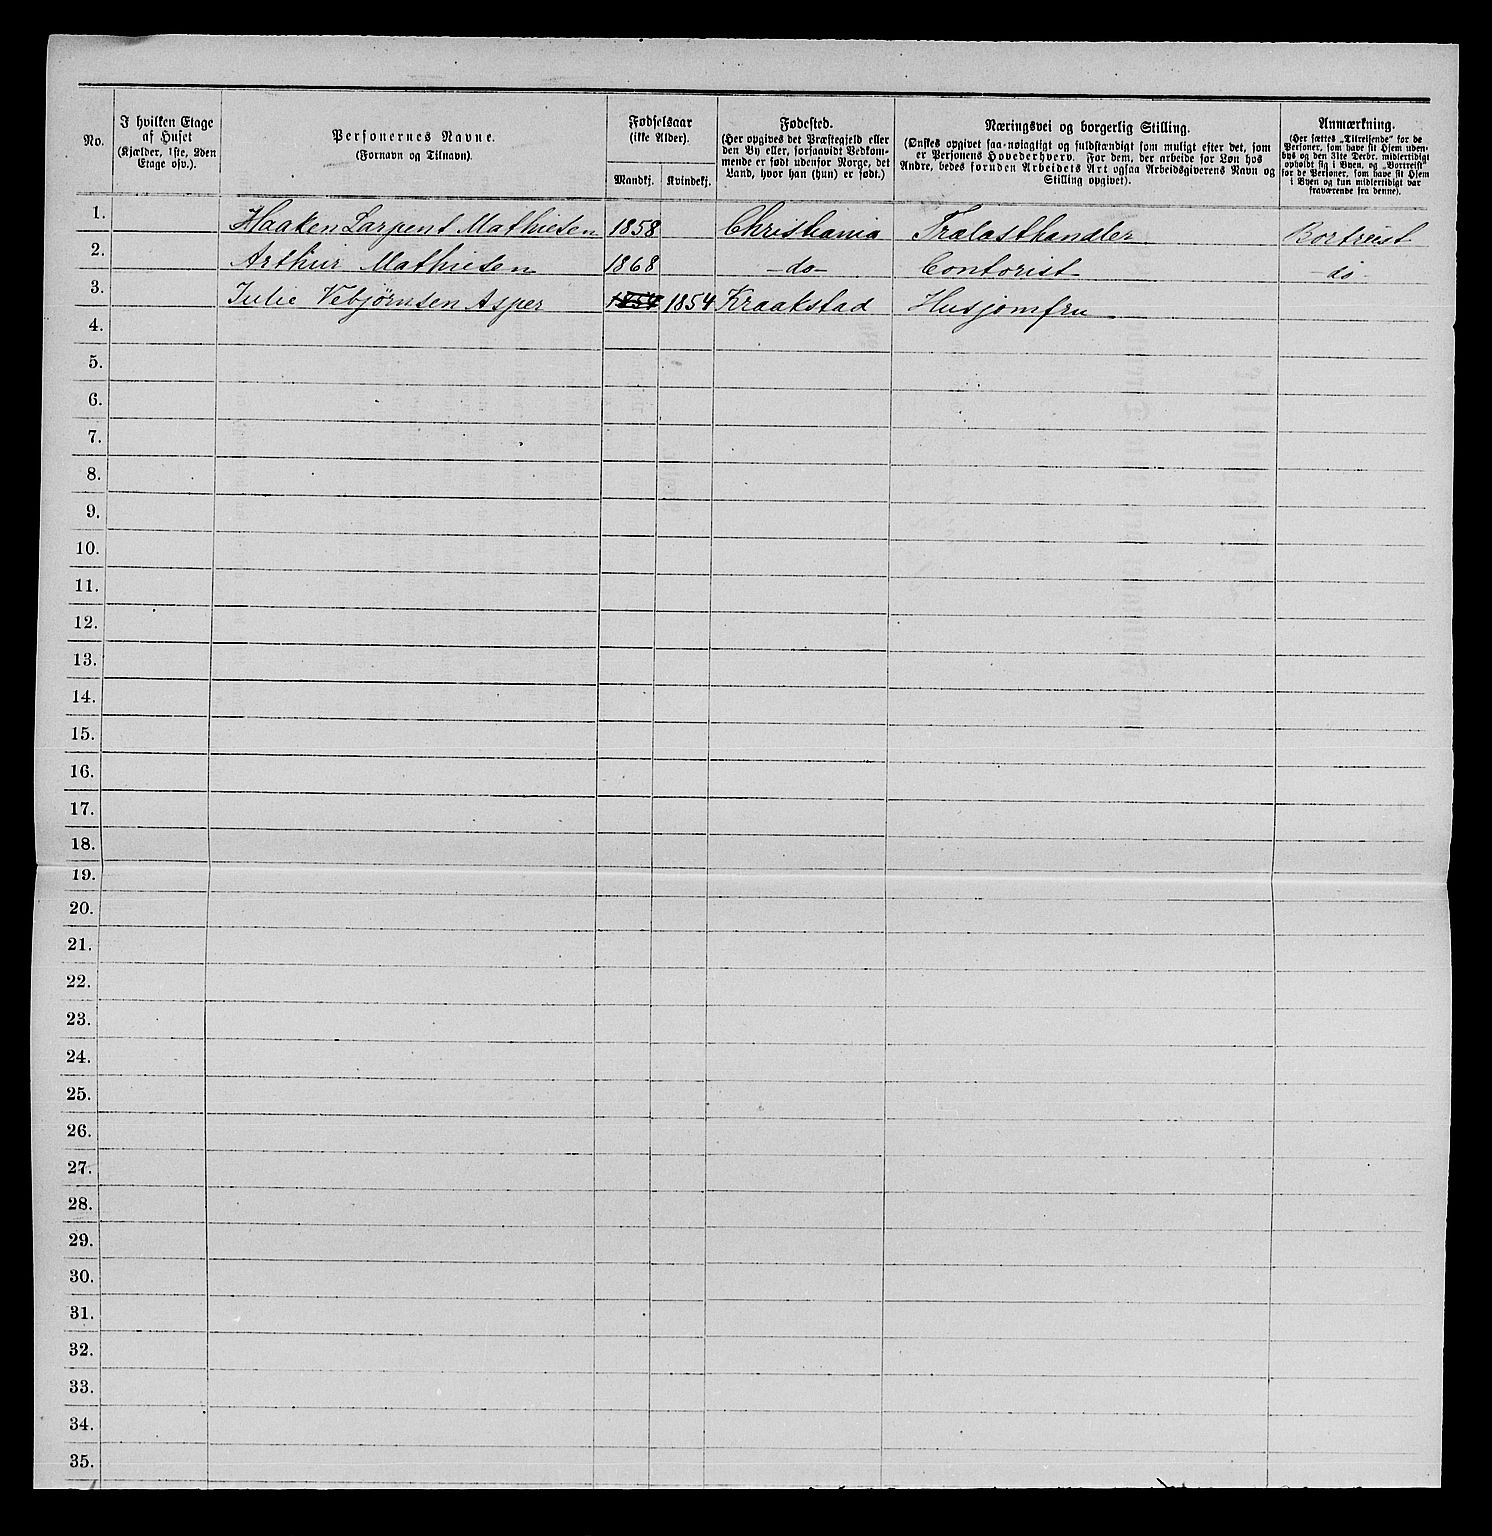 No.
I hvilken Etage
af Huset
(Kjælder, 1ste, 2den
Etage osv.).
Personernes Navne.
(Fornavn og Tilnavn).
Fødselsaar
(ikke Alder).
Mandkj. Kvindekj.
Fødested.
(Her opgives det Præstegjeld eller
den By eller, forsaavidt Vedkom-
mende er født udenfor Norge, det
Land, hvor han (hun) er født.)
Næringsvei og borgerlig Stilling.
(Ønskes opgivet saa nøiagtigt og fuldstændigt som muligt efter det, som
er Personens Hovederhverv. For dem, der arbeide for Løn hos
Andre, bedes foruden Arbeidets Art ogsaa Arbeidsgiverens Navn og
Stilling opgivet).
Anmærkning.
(Her sættes „Tilreisende“ for de
Personer, som have sit Hjem uden-
bys og den 31te Decbr. midlertidigt
opholdt sig i Byen, og „Bortreist“
for de Personer, som have sit Hjem
i Byen og kun midlertidigt var
fraværende fra denne).
1. Haaken Larpent Mathiesen 1858 Christiania Trælasthandler Bortreist
2. Arthur Mathiesen 1868 -do- Contorist -do-
3. Julie Vebjørnsen Asper 1854 1854 Kraakstad Husjomfru
4.
5.
6.
7.
8.
9.
10.
11.
12.
13.
14.
15.
16.
17.
18.
19.
20.
21.
22.
23.
24.
25.
26.
27.
28.
29.
30.
31.
32.
33.
34.
35.